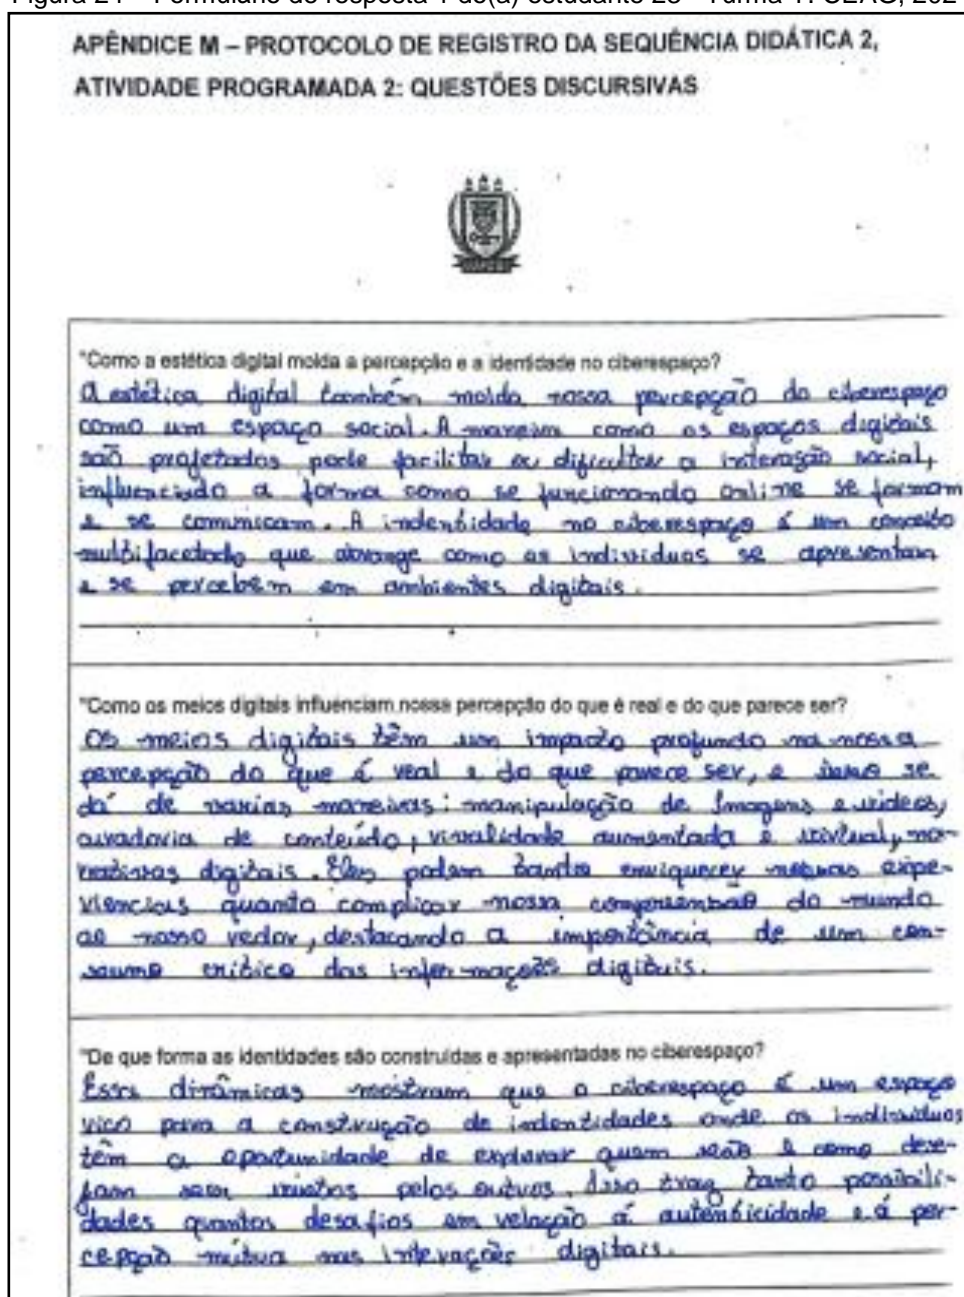 Figura 24 – Formulário de resposta 1 do(a) estudante 28 - Turma 1. CEAG, 202
APÊNDICE M – PROTOCOLO DE REGISTRO DA SEQUÊNCIA DIDÁTICA 2,
ATIVIDADE PROGRAMADA 2: QUESTÕES DISCURSIVAS
"Como a estética digital molda a percepção e a identidade no ciberespaço?
A estética digital também molda nossa percepção do ciberespaço
como um espaço social. A maneira como os espaços digitais
são projetados pode facilitar ou dificultar a interação social,
influenciado a forma como se funcionando online se formam
e se comunicam. A indentidade no ciberespaço é um conceito
multifacetado que abrange como os individuos se apresentam
e se percebem em ambientes digitais.
"Como os meios digitais influênciam nossa percepção do que é real e do que parece ser?
Os meios digitais têm um impacto profundo na nossa
percepção do que é real e do que parece ser, e isso se
dá de varias maneiras: manipulação de Imagens e videos,
curadoria de conteúdo, realidade aumentada e virtual, na-
rrativas digitais. Eles podem tanto enriquecer nossas expe-
riências quanto complicar nossa compreensão do mundo
ao nosso redor, destacando a importância de um con-
saumo critico das informações digitais.
"De que forma as identidades são construídas e apresentadas no ciberespaço?
Essas dinâmicas mostram que o ciberespaço é um espaço
rico para a construção de indentidades onde os individuos
têm a oportunidade de explorar quem são e como dese-
jam ser vistos pelos outros. Isso traz tanto possibili-
dades quantos desafios em relação á autenticidade e á per-
cepção mútua nas interações digitais.